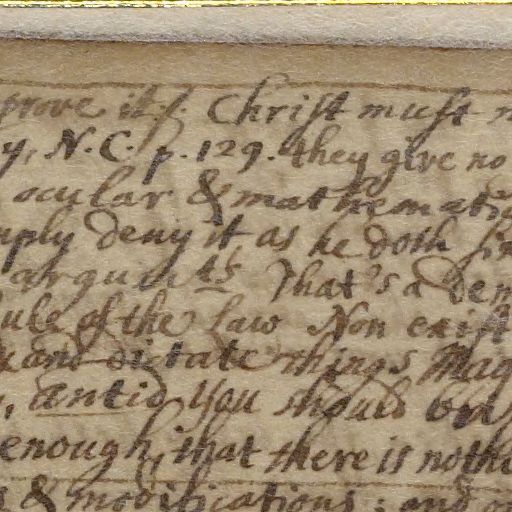 prove it. Christ must
N.C. p. 129. they give no
ocular & mathematic
deny it, as he doth
argumts. That's a dem
of the law Non exist
and dictate things Mag
antid you should but
enough, that there is nothi
& modifications: and